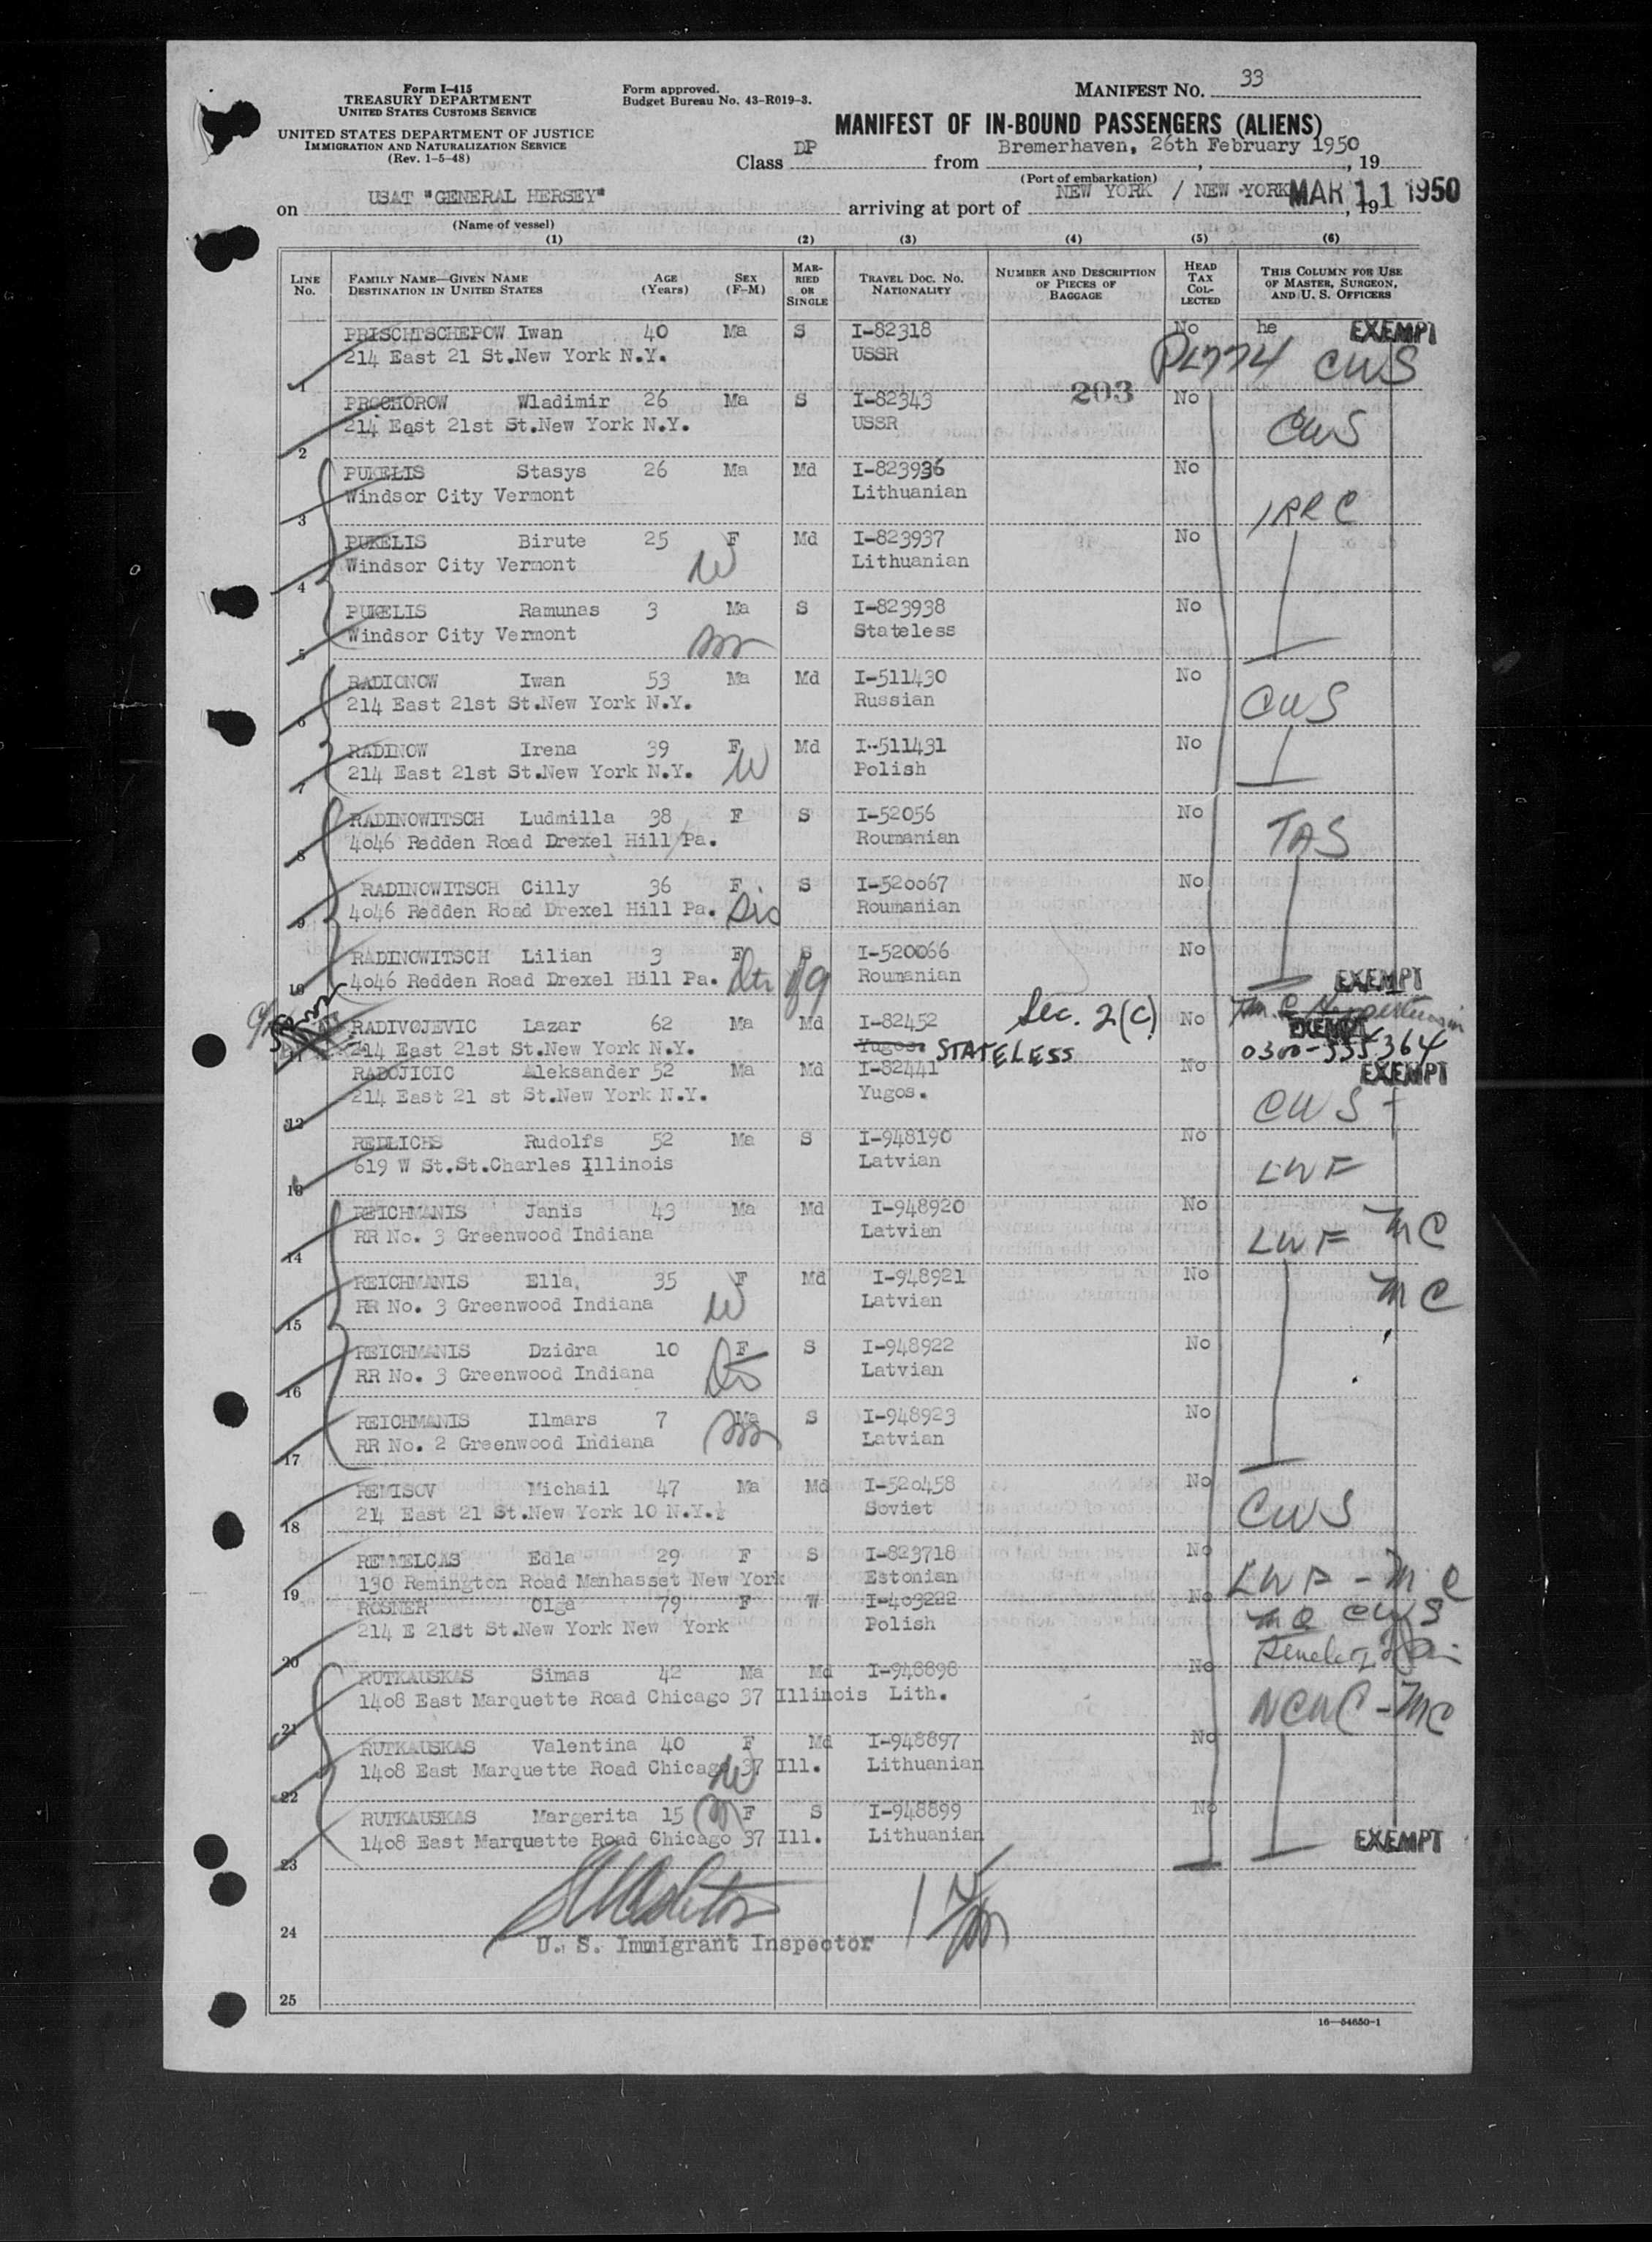 Form I-415
TREASURY DEPARTMENT
UNITED STATES CUSTOMS SERVICE
UNITED STATES DEPARTMENT OF JUSTICE
IMMIGRATION AND NATURALIZATION SERVICE
(Rev. 1-5-48)
Form approved.
Budget Bureau No. 43-R019-3.
MANIFEST NO. 33
MANIFEST OF IN-BOUND PASSENGERS (ALIENS)
Class DP from Bremerhaven, 26th February 1950, 19
(Port of embarkation)
on USAT "GENERAL HERSEY" arriving at port of NEW YORK / NEW YORK MAR 11 1950, 19
(Name of vessel)
(1) (2) (3) (4) (5) (6)
LINE No. FAMILY NAME—GIVEN NAME DESTINATION IN UNITED STATES AGE (Years) SEX (F-M) MARRIED OR SINGLE TRAVEL DOC. NO. NATIONALITY NUMBER AND DESCRIPTION OF PIECES OF BAGGAGE HEAD TAX COLLECTED THIS COLUMN FOR USE OF MASTER, SURGEON, AND U. S. OFFICERS
PRISCHTSCHEPOW Iwan 40 Ma S I-82318 No he EXEMPT
1 214 East 21 St.New York N.Y. USSR PL774 CWS
203
PROCHOROW Wladimir 26 Ma S I-82343 No
2 214 East 21st St.New York N.Y. USSR CWS
PUKELIS Stasys 26 Ma Md I-823936 No
3 Windsor City Vermont Lithuanian IRRC
PUKELIS Birute 25 F Md I-823937 No
4 Windsor City Vermont W Lithuanian
PUKELIS Ramunas 3 Ma S I-823938 No
5 Windsor City Vermont Stateless
RADIONOW Iwan 53 Ma Md I-511430 No
6 214 East 21st St.New York N.Y. Russian CWS
RADINOW Irena 39 F Md I-511431 No
7 214 East 21st St.New York N.Y. W Polish
RADINOWITSCH Ludmilla 38 F S I-52056 No
8 4046 Redden Road Drexel Hill Pa. Roumanian TAS
RADINOWITSCH Cilly 36 F S I-520067 No
9 4046 Redden Road Drexel Hill Pa. Sis Roumanian
RADINOWITSCH Lilian 3 F S I-520066 No
10 4046 Redden Road Drexel Hill Pa. Dtr Roumanian EXEMPT
RADIVOJEVIC Lazar 62 Ma Md I-82452 Sec. 2(C) No
11 214 East 21st St.New York N.Y. Yugos. STATELESS EXEMPT 0300-555364
RADOJICIC Aleksander 52 Ma Md I-82441 No EXEMPT
12 214 East 21 st St.New York N.Y. Yugos. CWS
REDLICHS Rudolfs 52 Ma S I-948190 No
13 619 W St.St.Charles Illinois Latvian LWF
REICHMANIS Janis 43 Ma Md I-948920 No
14 RR No. 3 Greenwood Indiana Latvian LWF MC
REICHMANIS Ella, 35 F Md I-948921 No MC
15 RR No. 3 Greenwood Indiana W Latvian
REICHMANIS Dzidra 10 F S I-948922 No
16 RR No. 3 Greenwood Indiana Latvian
REICHMANIS Ilmars 7 Ma S I-948923 No
17 RR No. 2 Greenwood Indiana Latvian
REMISOV Michail 47 Ma Md I-520458 No
18 214 East 21 St.New York 10 N.Y. Soviet CWS
REMMELGAS Edla 29 F S I-823718 No
19 130 Remington Road Manhasset New York Estonian LWF - MC
ROSNER Olga 79 F W I-409222 No MC CWS
20 214 E 21st St.New York New York Polish
RUTKAUSKAS Simas 42 Ma Md I-948898 No
21 1408 East Marquette Road Chicago 37 Illinois Lith. NCWC - MC
RUTKAUSKAS Valentina 40 F Md I-948897 No
22 1408 East Marquette Road Chicago 37 Ill. W Lithuanian
RUTKAUSKAS Margerita 15 F S I-948899 No
23 1408 East Marquette Road Chicago 37 Ill. Lithuanian EXEMPT
24 U. S. Immigrant Inspector
25
16—54650-1